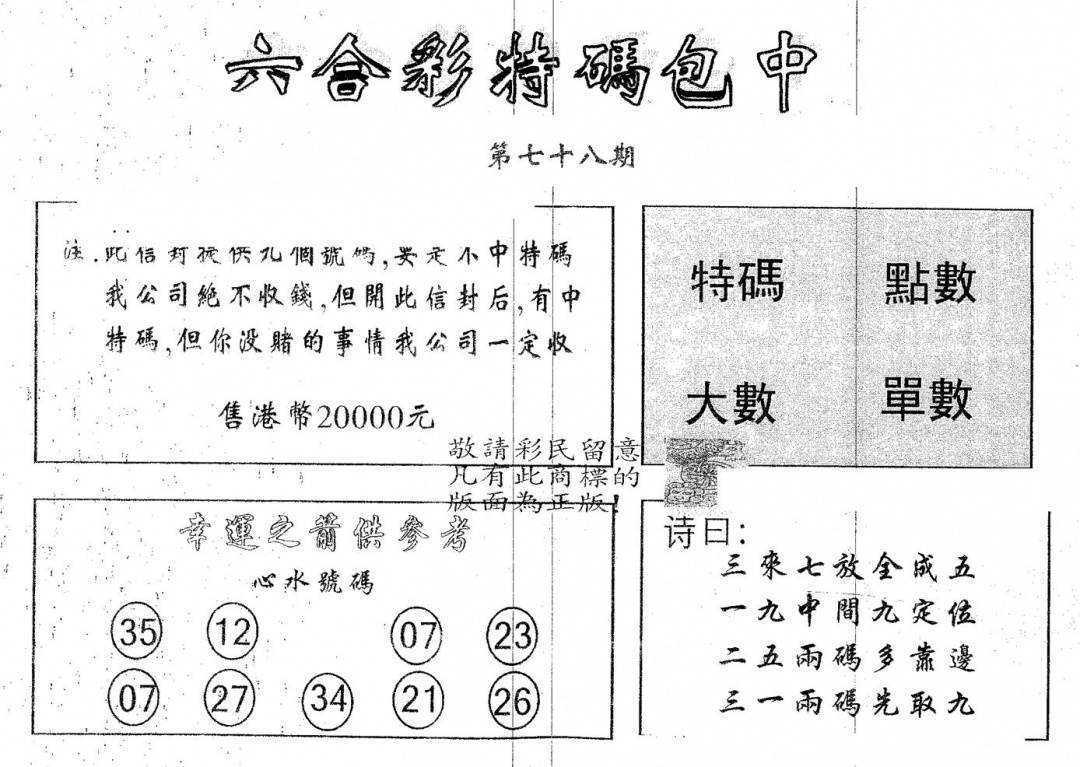 六合彩特碼包中
第七十八期
注.此信封提供九個號碼,要是不中特碼
我公司絕不收錢,但開此信封后,有中
特碼,但你没賭的事情我公司一定收
售港幣20000元
特碼 點數
大數 單數
敬請彩民留意
凡有此商標的
版面為正版!
幸運之箭供參考
心水號碼
35 12 07 23
07 27 34 21 26
诗曰:
三來七放全成五
一九中間九定位
二五兩碼多靠邊
三一兩碼先取九